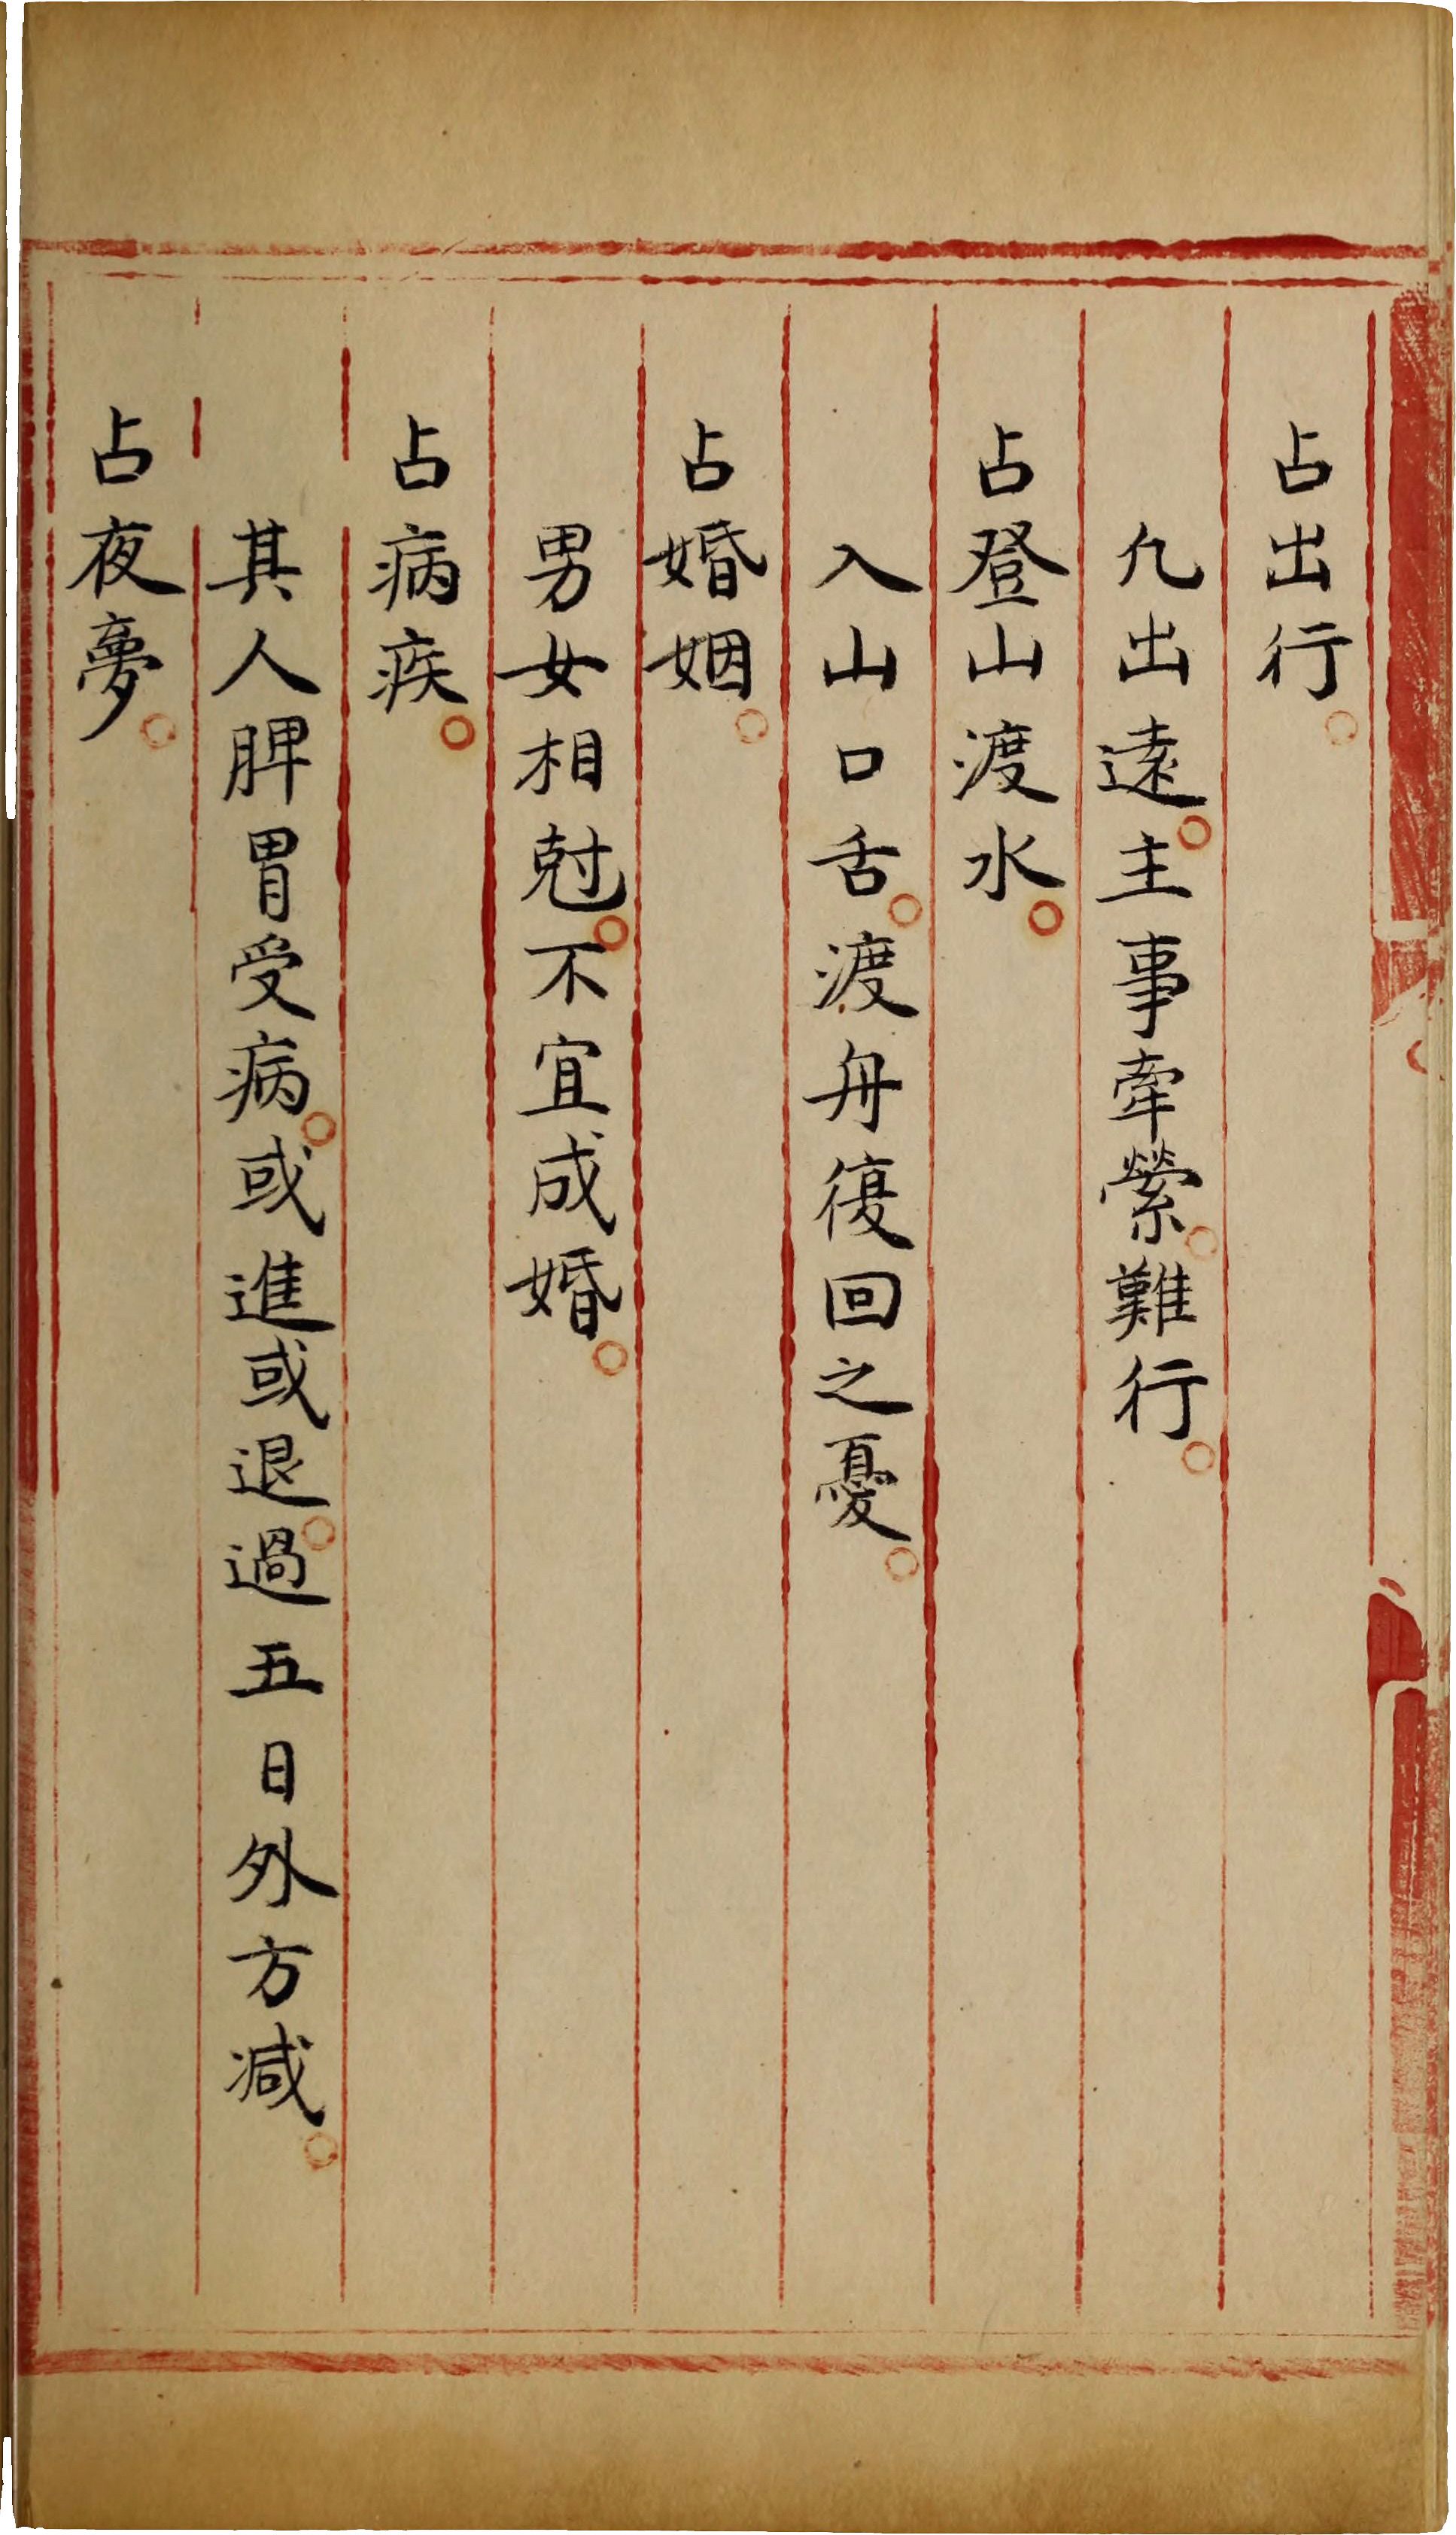 占出行。
凢出遠。主事牽縈。難行。
占登山渡水。
入山口舌。渡舟復回之憂。
占婚姻。
男女相尅。不宜成婚。
占病疾。
其人脾胃受病。或進或退。過五日外方減。
占夜夢。